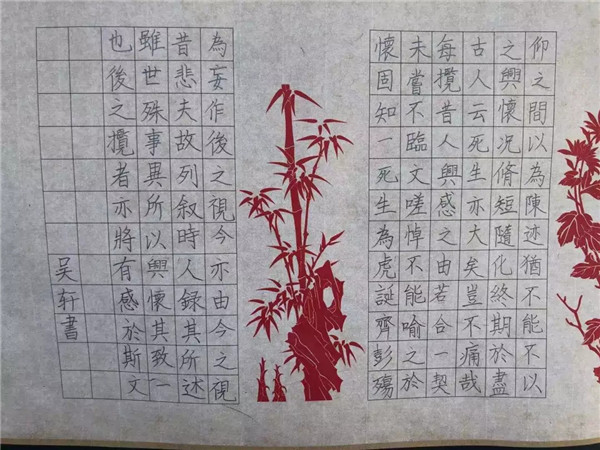 仰之間以為陳迹猶不能不以
之興懷况脩短隨化終期於盡
古人云死生亦大矣豈不痛哉
每攬昔人興感之由若合一契
未嘗不臨文嗟悼不能喻之於
懷固知一死生為虎誕齊彭殤
為妄作後之視今亦由今之視
昔悲夫故列叙時人録其所述
雖世殊事異所以興懷其致一
也後之攬者亦將有感於斯文
吴轩書